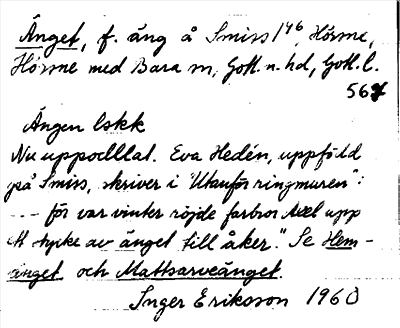 Änget, f. äng å Smiss 1⁴⁶, Hörsne,
Hörsne med Bara sn, Gotl. n. hd, Gotl. l.
567
Ängen lskk
Nu uppodlat. Eva Hedén, uppfödd
på Smiss, skriver i "Utanför ringmuren":
--- för var vinter röjde farbror Axel upp
ett stycke av änget till åker." Se Hem-
änget och Mattsarveänget.
Inger Eriksson 1960